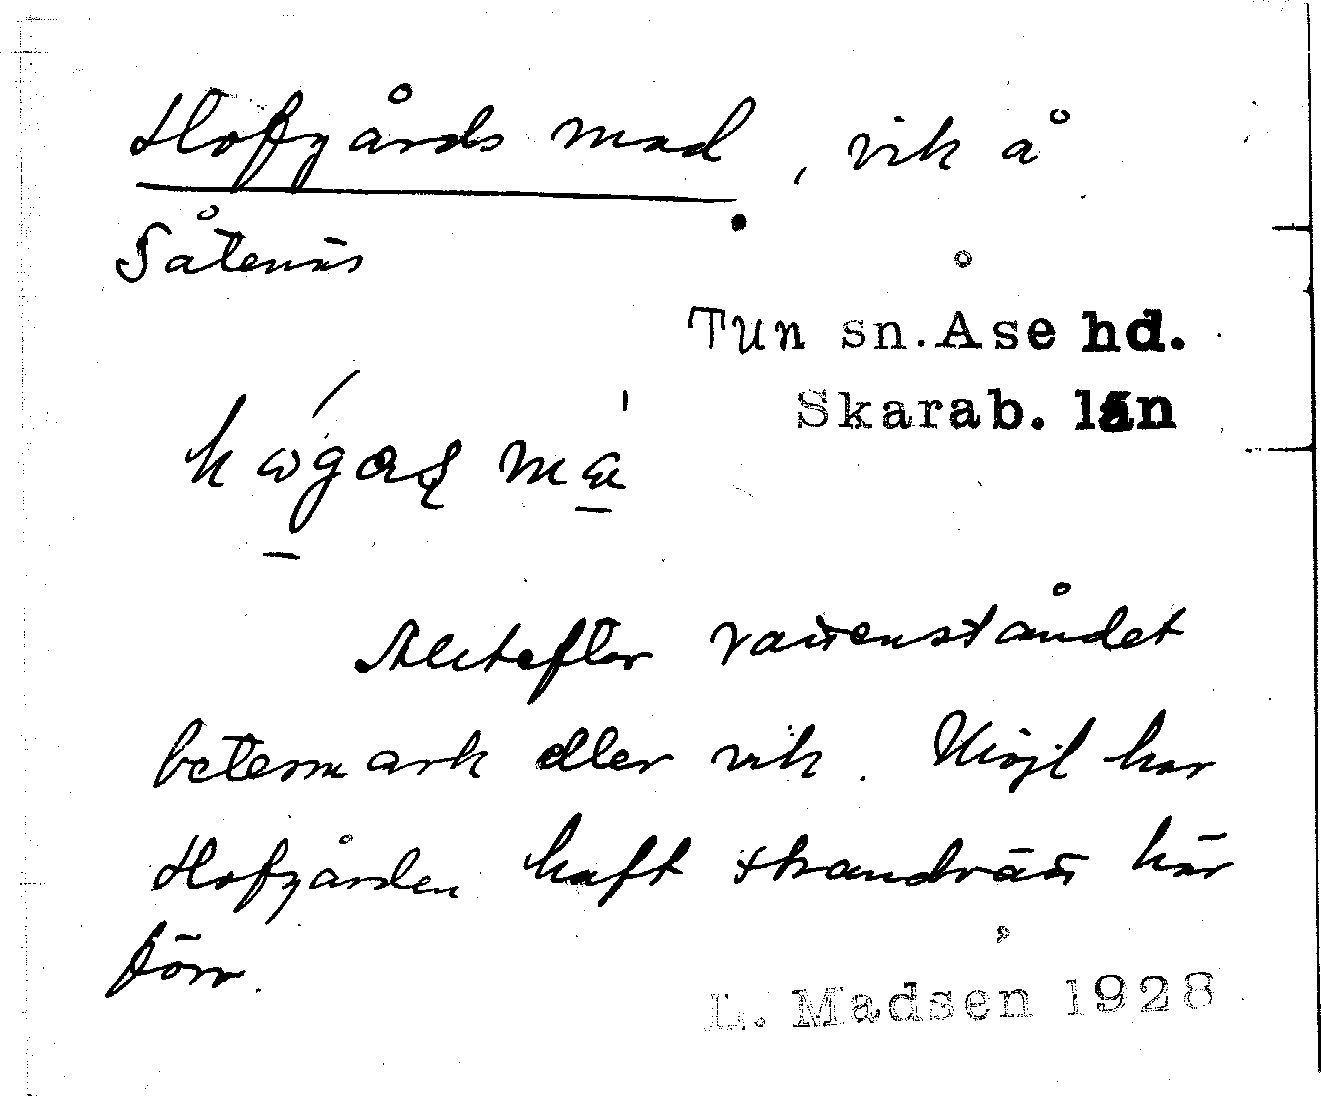 Hofgårds mad, vik å
Såtenäs
Tun sn. Åse hd.
Skarab. län
Alltefter vattenståndet
betesmark eller vik. Möjl har
Hofgården haft strandrätt här
förr.
L. Madsen 1928